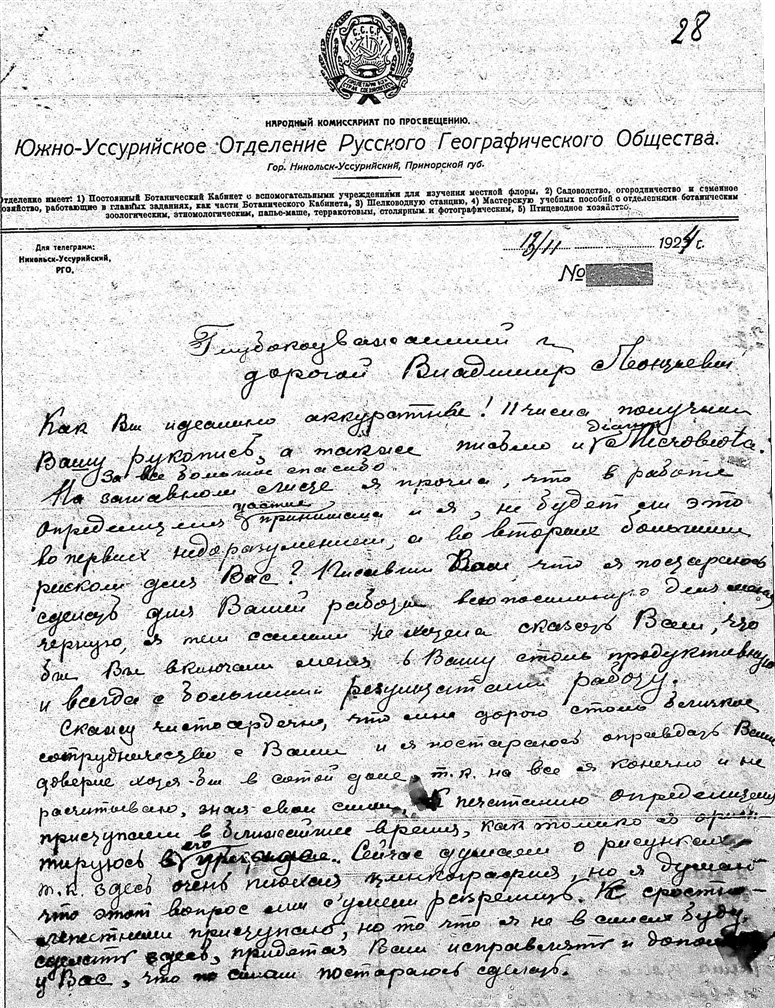 28
С.С.С.Р.
НАРОДНЫЙ КОМИССАРИАТ ПО ПРОСВЕЩЕНИЮ.
Южно-Уссурийское Отделение Русского Географического Общества.
Гор. Никольск-Уссурийский, Приморской губ.
Отделение имеет: 1) Постоянный Ботанический Кабинет с вспомогательными учреждениями для изучения местной флоры, 2) Садоводство, огородничество и семенное
хозяйство, работающие в главных заданиях, как части Ботанического Кабинета, 3) Шелководную станцию, 4) Мастерскую учебных пособий с отделениями ботаническим
зоологическим, этномологическим, папье-маше, терракотовым, столярным и фотографическим, 5) Птицеводное хозяйство.
Для телеграмм:
Никольск-Уссурийский,
РГО.
1924 г.
№
Глубокоуважаемый и
дорогой Владимир Леонтьевич
Как Вы идеально аккуратны! 11 числа получил
Вашу рукопись, а также письмо и Microbiota.
За все большое спасибо.
На заглавном листе я прочел, что в работе
определителя участие принимаю и я, не будет ли это
во первых недоразумением, а во вторых большим
риском для Вас? Писавши Вам, что я постараюсь
сделать для Вашей работы всю посильную для меня
черную, я тем самым не хотел сказать Вам, что
бы Вы включали меня в Вашу столь продуктивную
и всегда с большими результатами работу.
Скажу чистосердечно, что мне дорого столь близкое
сотрудничество с Вами и я постараюсь оправдать Ваше
доверие хотя-бы в сотой доле, т.к. на все я конечно и не
расчитываю, зная свои силы. К печатанию определителя
приступаем в ближайшее время, как только я ориен-
тируюсь в его. Сейчас думаем о рисунках
т.к. здесь очень плохая цинкография, но я думаю
что этот вопрос мы сумеем разрешить. К сростно-
лепестным приступаю, но то что я не в силах буду
сделать здесь, придется Вам исправлять и
у Вас, что по силам постараюсь сделать.